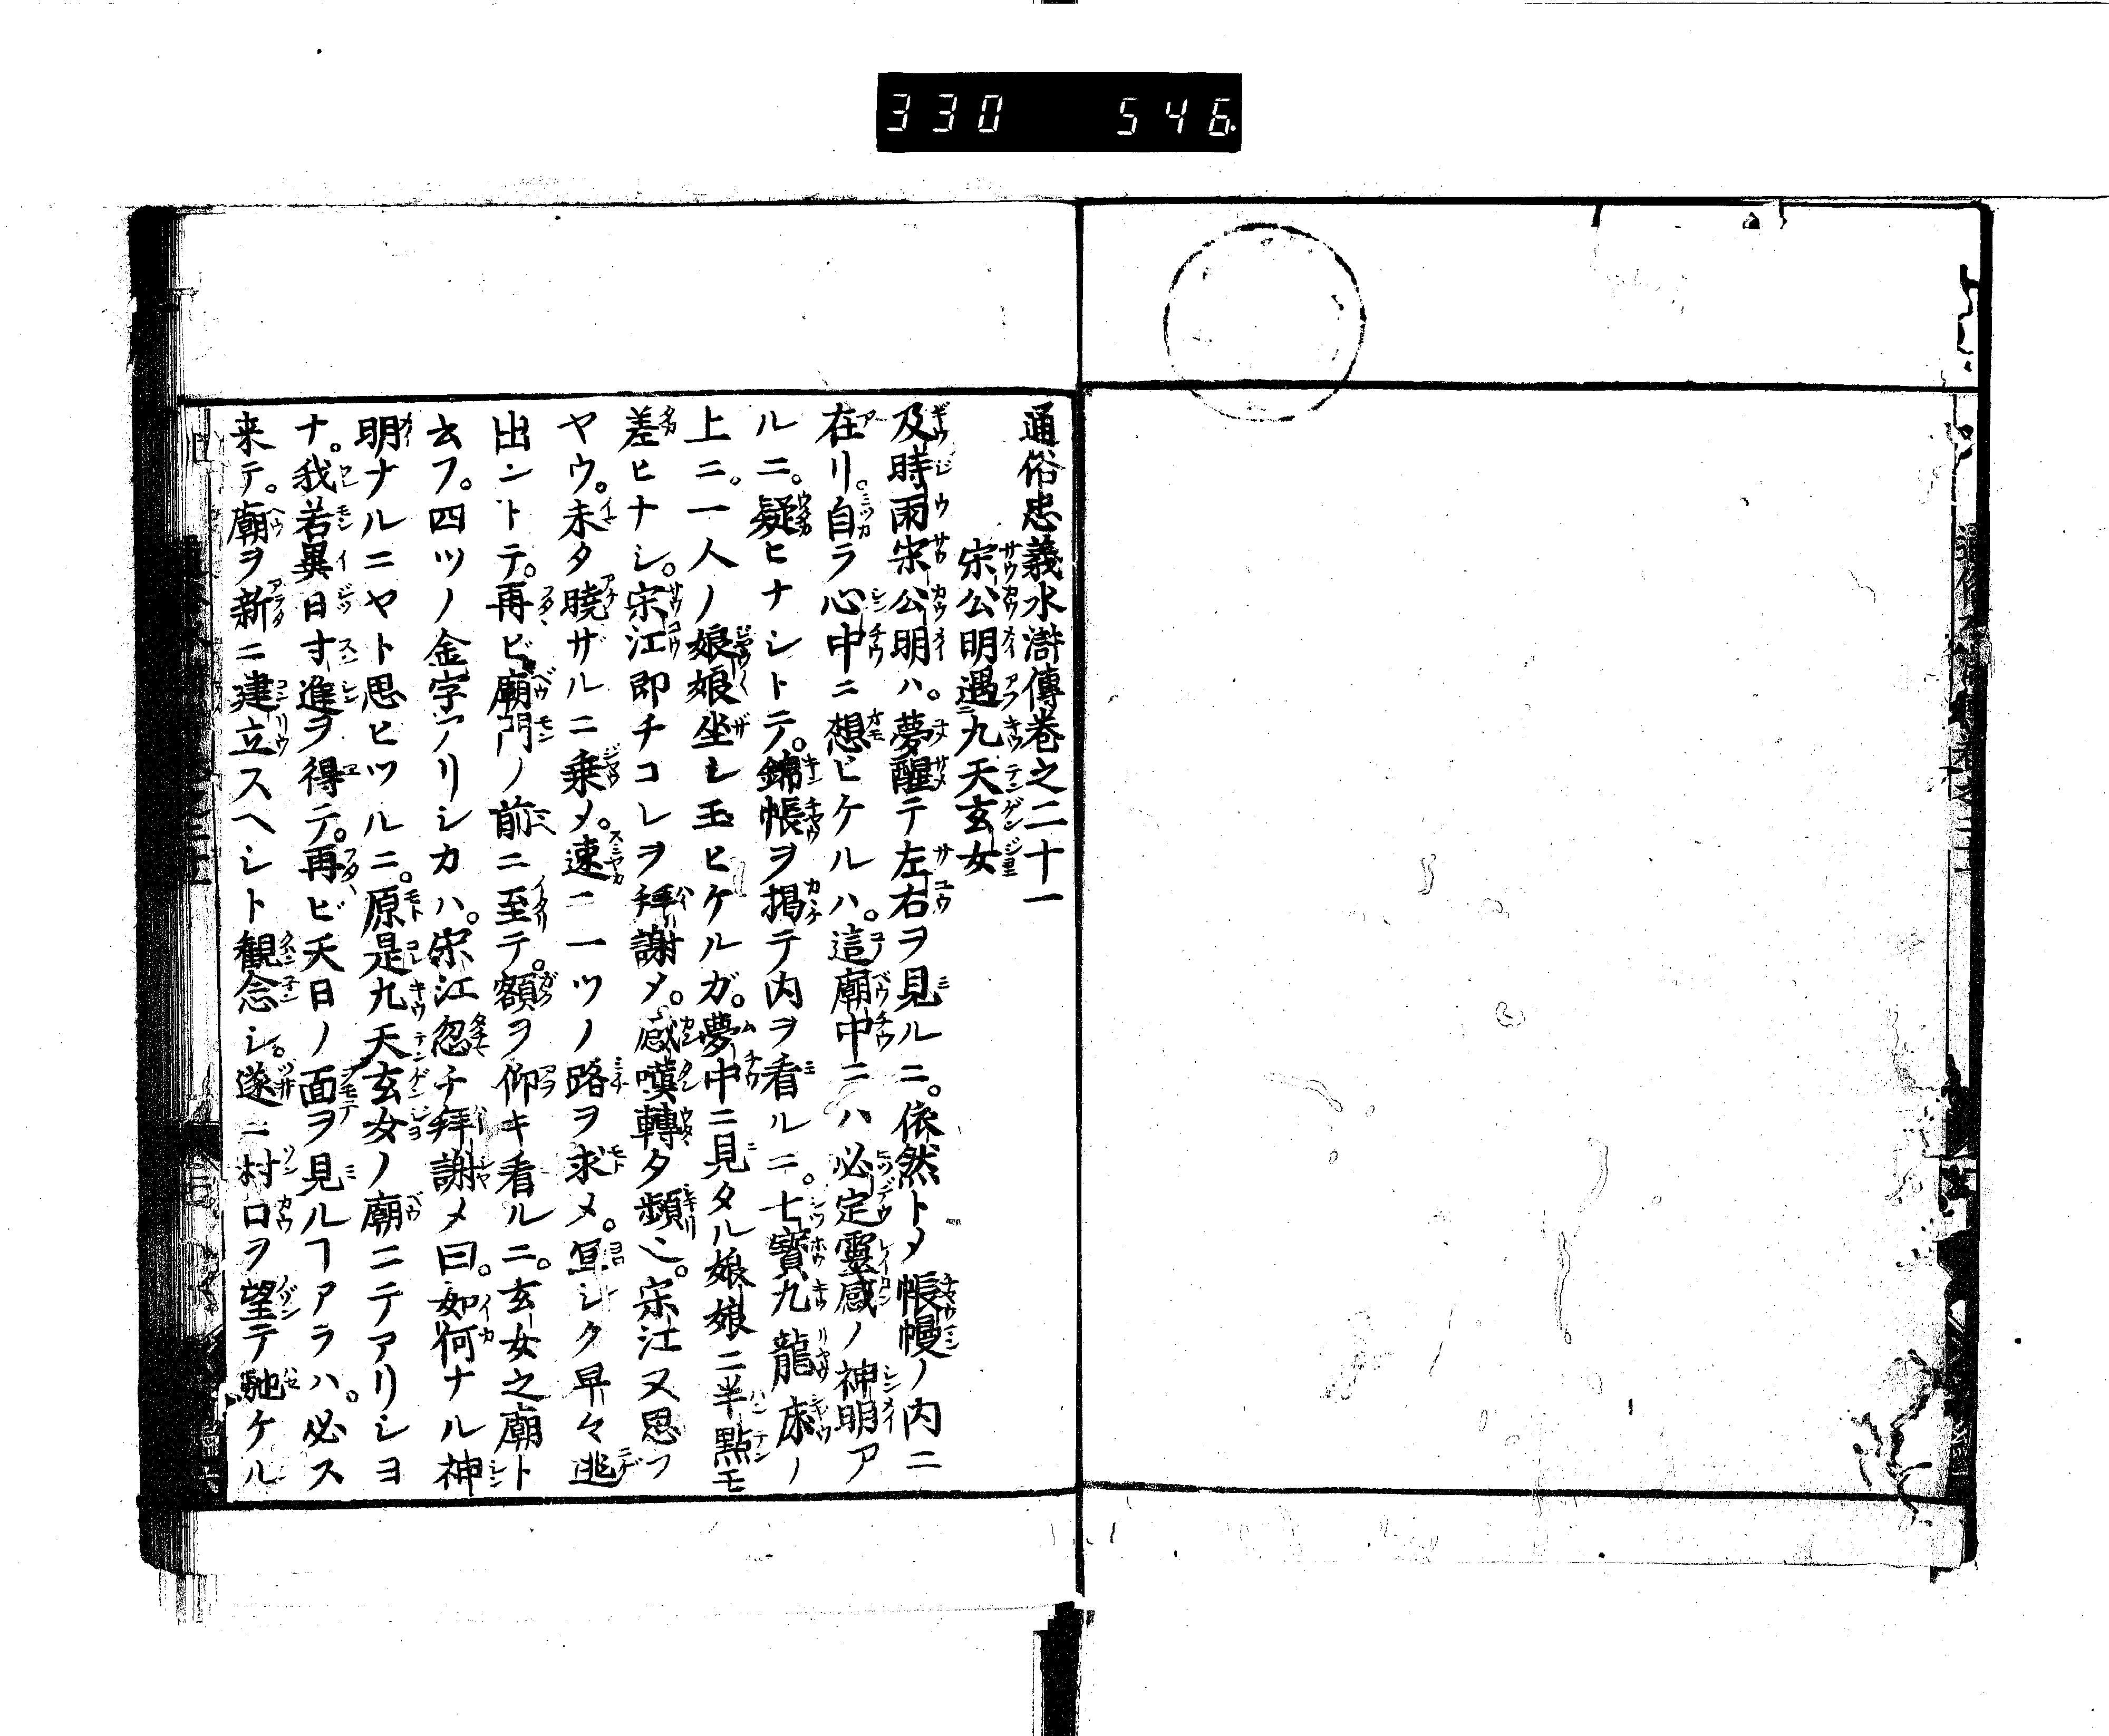 330 546
通俗忠義水滸傳巻之二十一
宋公明遇九天玄女
及時雨宋公明ハ。夢醒テ左右ヲ見ルニ。依然トメ帳幔ノ内ニ
在リ。自ラ心中ニ想ヒケルハ。這廟中ニハ必定靈感ノ神明ア
ルニ。疑ヒナシトテ。錦帳ヲ掲テ内ヲ看ルニ。七寳九龍床ノ
上ニ。一人ノ娘娘坐シ玉ヒケルガ。夢中ニ見タル娘娘ニ半點モ
差ヒナシ。宋江即チコレヲ拜謝メ。感嘆轉タ頻ニ。宋江又思フ
ヤウ。未タ曉ザルニ乗メ。速ニ一ツノ路ヲ求メ。冝シク早々逃
出ントテ。再ビ廟門ノ前ニ至テ。額ヲ仰キ看ルニ。玄女之廟ト
云フ。四ツノ金字アリシカハ。宋江忽チ拜謝メ曰。如何ナル神
明ナルニヤト思ヒツルニ。原是九天玄女ノ廟ニテアリシヨ
ナ。我若異日寸進ヲ得テ。再ビ天日ノ面ヲ見ルヿアラハ。必ス
来テ。廟ヲ新ニ建立スヘシト觀念シ。遂ニ村口ヲ望テ馳ケル